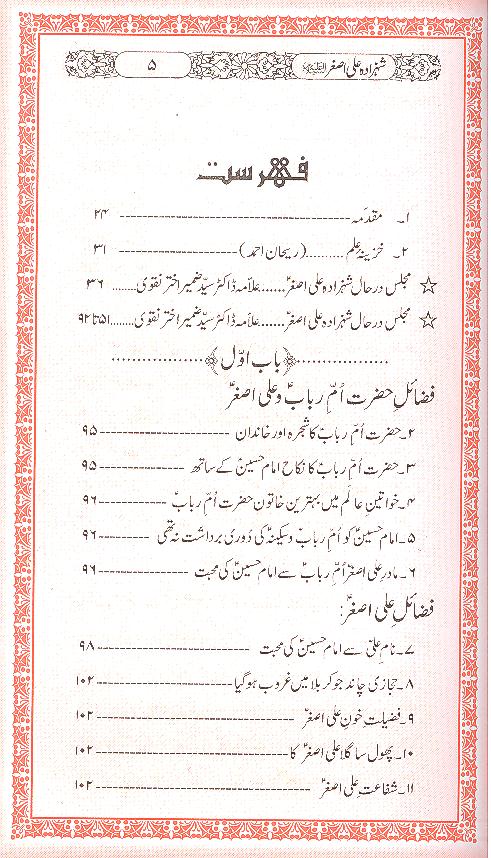 شہزادہ علی اصغر ۵
فہرست
۱۔ مقدمہ ---------- ۲۴
۲۔ خزینۂ علم ......... (ریحان احمد) ---------- ۳۱
☆ مجلس در حال شہزادہ علی اصغرؑ ...... علامہ ڈاکٹر سیّد ضمیر اختر نقوی ...... ۳۶
☆ مجلس در حال شہزادہ علی اصغرؑ ...... علامہ ڈاکٹر سیّد ضمیر اختر نقوی ...... ۵۱ تا ۹۲
﴿باب اوّل﴾
فضائلِ حضرت اُمِّ ربابؑ و علی اصغرؑ
۲۔ حضرت اُمِّ ربابؑ کا شجرہ اور خاندان ---------- ۹۵
۳۔ حضرت اُمِّ ربابؑ کا نکاح امام حسینؑ کے ساتھ ---------- ۹۵
۴۔ خواتینِ عالَم میں بہترین خاتون حضرت اُمِّ ربابؑ ---------- ۹۶
۵۔ امام حسینؑ کو اُمِّ ربابؑ و سکینہؑ کی دُوری برداشت نہ تھی ---------- ۹۶
۶۔ مادرِ علی اصغرؑ اُمِّ ربابؑ سے امام حسینؑ کی محبت ---------- ۹۶
فضائلِ علی اصغرؑ:
۷۔ نامِ علیؑ سے امام حسینؑ کی محبت ---------- ۹۸
۸۔ حجازی چاند جو کربلا میں غروب ہوگیا ---------- ۱۰۲
۹۔ فضیلت خونِ علی اصغرؑ ---------- ۱۰۲
۱۰۔ پھول سا گلا علی اصغرؑ کا ---------- ۱۰۲
۱۱۔ شفاعتِ علی اصغرؑ ---------- ۱۰۲